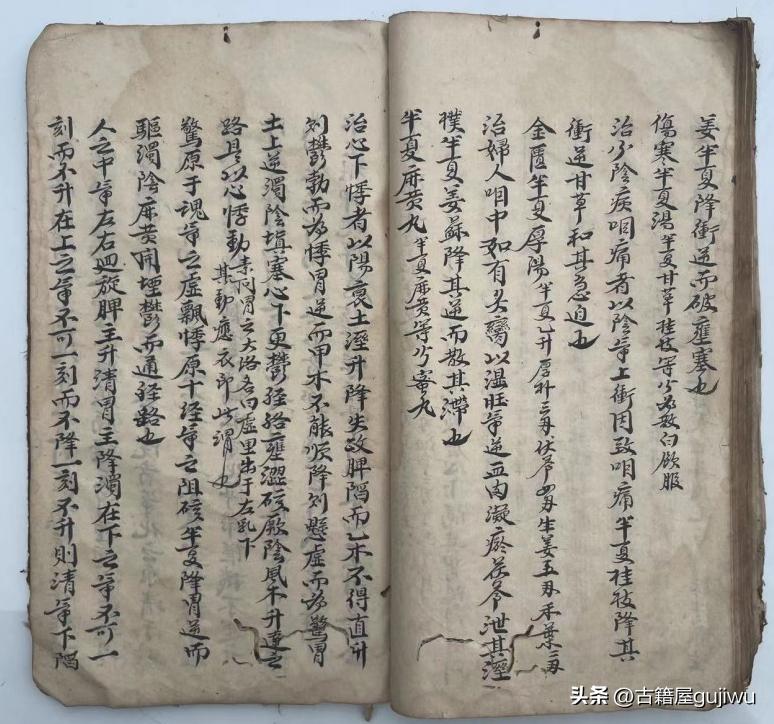 姜半夏降衝逆而破壅塞也
傷寒半夏湯半夏甘草桂枝等分為散白飲服
治少陰疾咽痛者以陰氣上衝因致咽痛半夏桂枝降其
衝逆甘草和其急迫也
金匱半夏厚湯半夏乙升厚朴三両伏苓四両生姜五両禾葉二両
治婦人咽中如有炙臠以湿旺氣逆血肉凝瘀茯苓泄其溼
樸半夏姜蘇降其逆而散其滯也
半夏麻黄丸半夏麻黄等分蜜丸
治心下悸者以陽衰土溼升降失故脾陷而乙木不得直升
則鬱勃而為悸胃逆而甲木不能順降則懸虛而為驚胃
土上逆濁陰填塞心下更鬱經絡壅澀碍厥陰風木升達之
路是以心悸動素问胃之大洛名曰虛里出于左乳下其動應衣即此謂也
驚原于魂氣之虛飄悸原于經氣之阻碍半夏降胃逆而
驅濁陰麻黄開堙鬱而通經路也
人之中氣左右迴旋脾主升清胃主降濁在下之氣不可一
刻而不升在上之氣不可一刻而不降一刻不升則清氣下陷
头条 @古籍屋gujiwu